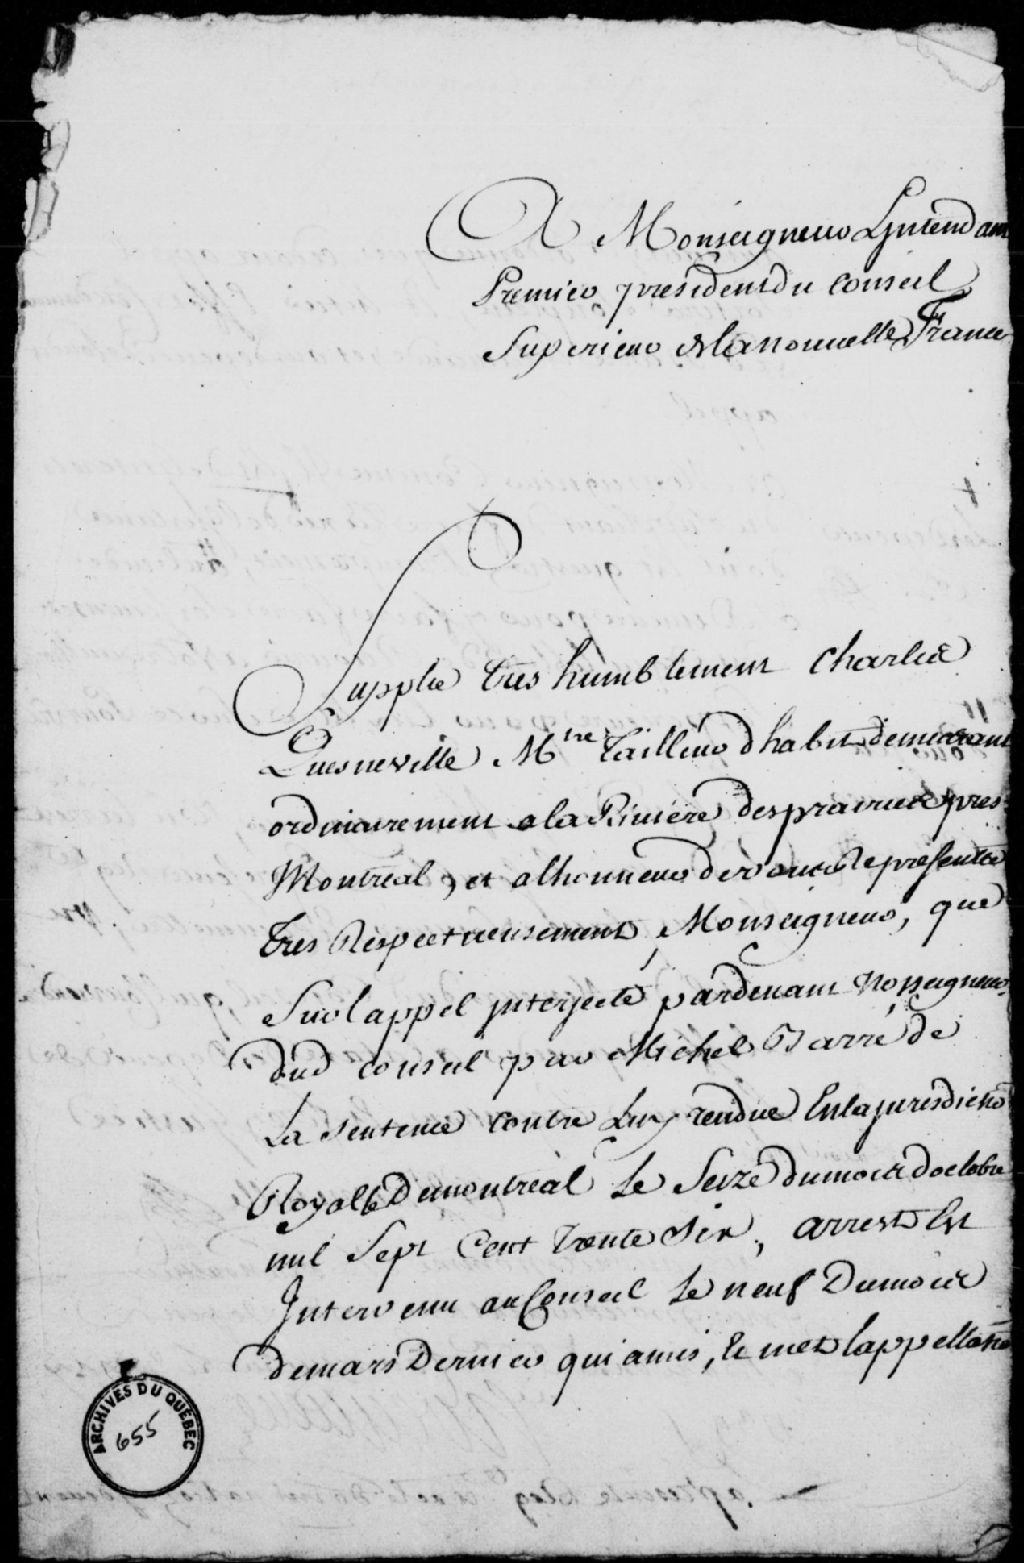 A Monseigneur Lintendant
Premier president du conseil
Superieur de la nouuelle France
Supplie tres humblement Charles
Quesneville Mtre Tailleur dhabits demeurant
ordinairement a la Riuiere des prairies pres
Montreal, et a lhonneur de vous Representer
tres Respectueusement, Monseigneur, que
Sur lappel interjecté pardeuant nosseigneurs
dud conseil par Michel Barré de
La sentence contre Luy rendue En la jurisdiction
Royalle de montreal le Seize du mois doctobre
mil Sept Cent trente Six, arrest Est
Interuenu au Conseil le neuf Du mois
de mars Dernier qui a mis, & met lappellation
ARCHIVES DU QUÉBEC
655